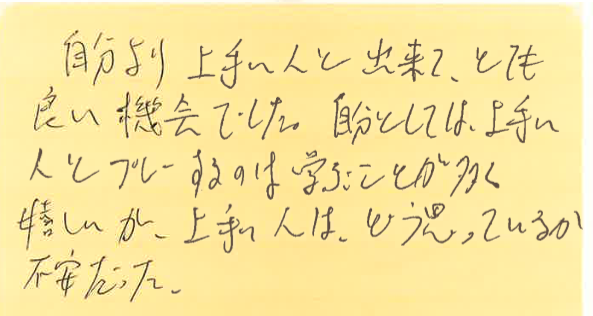 自分より上手い人と出来て、とても
良い機会でした。自分としては、上手い
人とプレーするのは学ぶことが多く
嬉しいが、上手い人は、どう思っているか
不安だった。